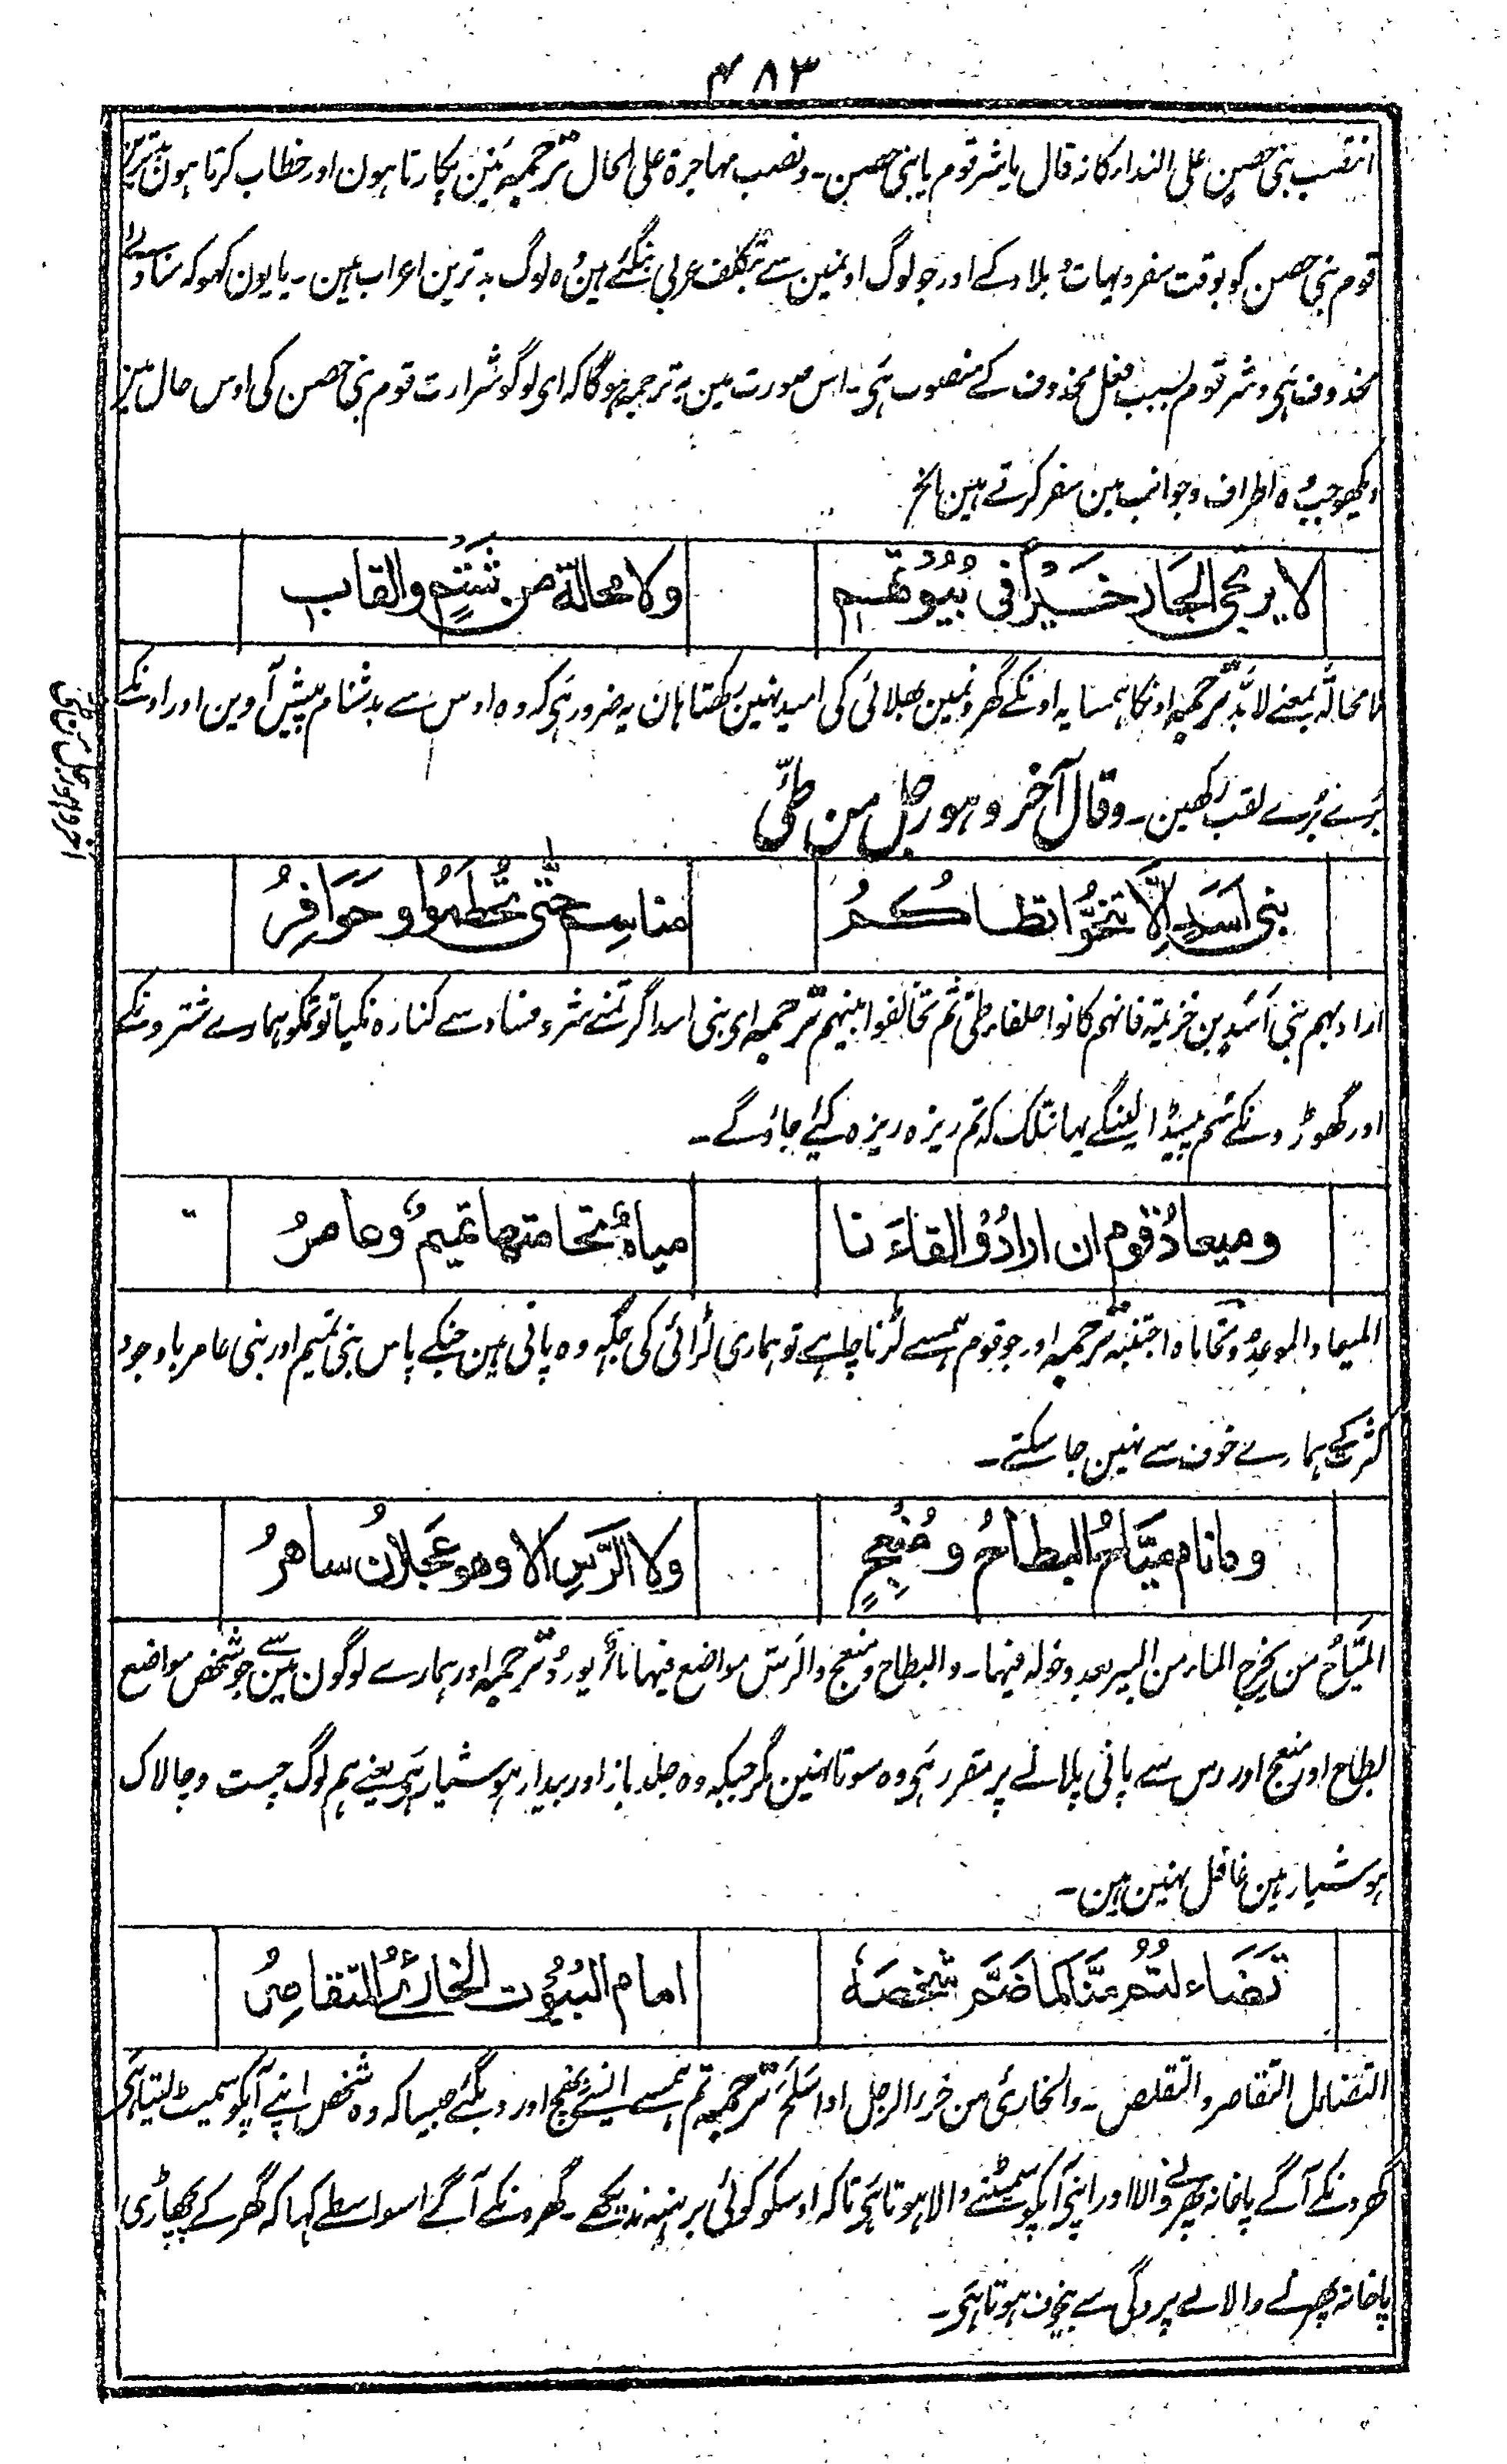 ۴۸۳
انتصب بنی حصن علی النداء کانہ قال یا شر قوم یا بنی حصن۔ ونصب مہاجرۃ علی الحال ترجمہ مین پکارتا ہون اور خطاب کرتا ہون بدترین
قوم بنی حصن کو بوقت سفر دیہات و بلاد کے اور جو لوگ اونمین سے بتکلف عربی بنگئے ہین وہ لوگ بدترین اعراب ہین۔ یا یون کہو کہ منادے
محذوف ہی و شر قوم بسبب فعل محذوف کے منصوب ہی۔ اس صورت مین یہ ترجمہ ہوگا کہ ای لوگو شرارت قوم بنی حصن کی اوس حال مین
دیکھو جب وہ اطراف و جوانب مین سفر کرتے ہین الخ
لا یرتجی الجار خَیْراً فی بُیُوْتِہِم ولا محالۃ من شَتْمٍ والقاب
لا محالۃ بمعنے لا بُدّ ترجمہ اونکا ہمسایہ اونکے گھرونمین بھلائی کی امید نہین رکھتا ہان یہ ضرور ہی کہ وہ اوس سے بدشنام پیش آوین اور اونکے
بُرے بُرے لقب رکھین۔ وقال آخر وہو رجل من طیّ
بنی اَسَدٍ اِلَّا تَنَحَّوْا تطاکُمُ مناسِم حتّی تُحْطَمُوا و حَوَافِرُ
اراد بہم بنی اَسَدِ بن خزیمۃ فانہم کانوا حلفاء طیّ ثم تخالفوا بینہم ترجمہ ای بنی اسد اگر تمنے شر و فساد سے کنارہ نکیا تو تمکو ہمارے شترونکے
اور گھوڑونکے سُم پیڈالینگے یہانتلک کہ تم ریزہ ریزہ کیئے جاؤگے۔
ومیعادُ قوم ان ارادُوْا لقاءَنا میاہٌ تحامتہا تمیمٌ وعامرُ
المیعاد الموعد وتحاماہ اجتنبہ ترجمہ اور جو قوم ہمسے لڑنا چاہے تو ہماری لڑائی کی جگہ وہ پانی ہین جنکے پاس بنی تمیم اور بنی عامر باوجود
کثرت کے ہمارے خوف سے نہین جا سکتے۔
وما نام میَّاحُ البطاحُ و مُنْعِجٍ ولا الرَّسِ الا وھو عَجلانُ ساھرُ
المَیَّاحُ من یخرج الماء من البیر بعد دخولہ فیہما۔ والبطاح و منعج والرَسّ مواضع فیہا ماءٌ یورد ترجمہ اور ہمارے لوگون مین سے جو شخص مواضع
بطاح اور منعج اور رس سے پانی پلانے پر مقرر ہی وہ سوتا نہین مگر جبکہ وہ جلدباز اور بیدار ہوشیار ہی یعنے ہم لوگ چست و چالاک
ہوشیار ہین غافل نہین ہین۔
تَضَاءلتُمْ مِنَّا کَمَا ضَمَّ شَخْصَہٗ امام البُیُوت الخارئُ المتقاصِرُ
التضاءل التقاصر والتقلص۔ والخاری من خرء الرجل اذا سَلَحَ ترجمہ تم ہمسے ایسے بھنچ اور دبگئے جیسا کہ وہ شخص اپنے آپکو سمیٹ لیتا ہی
گھرونکے آگے پاخانہ پھرنے والا اور اپنی آپکو سمیٹنے والا ہوتا ہی تاکہ اوسکو کوئی برہنہ ندیکھے۔ گھرونکے آگے اسواسطے کہا کہ گھر کے پچھاڑی
پاخانہ پھرنے والا بے پردگی سے بیخوف ہوتا ہی۔